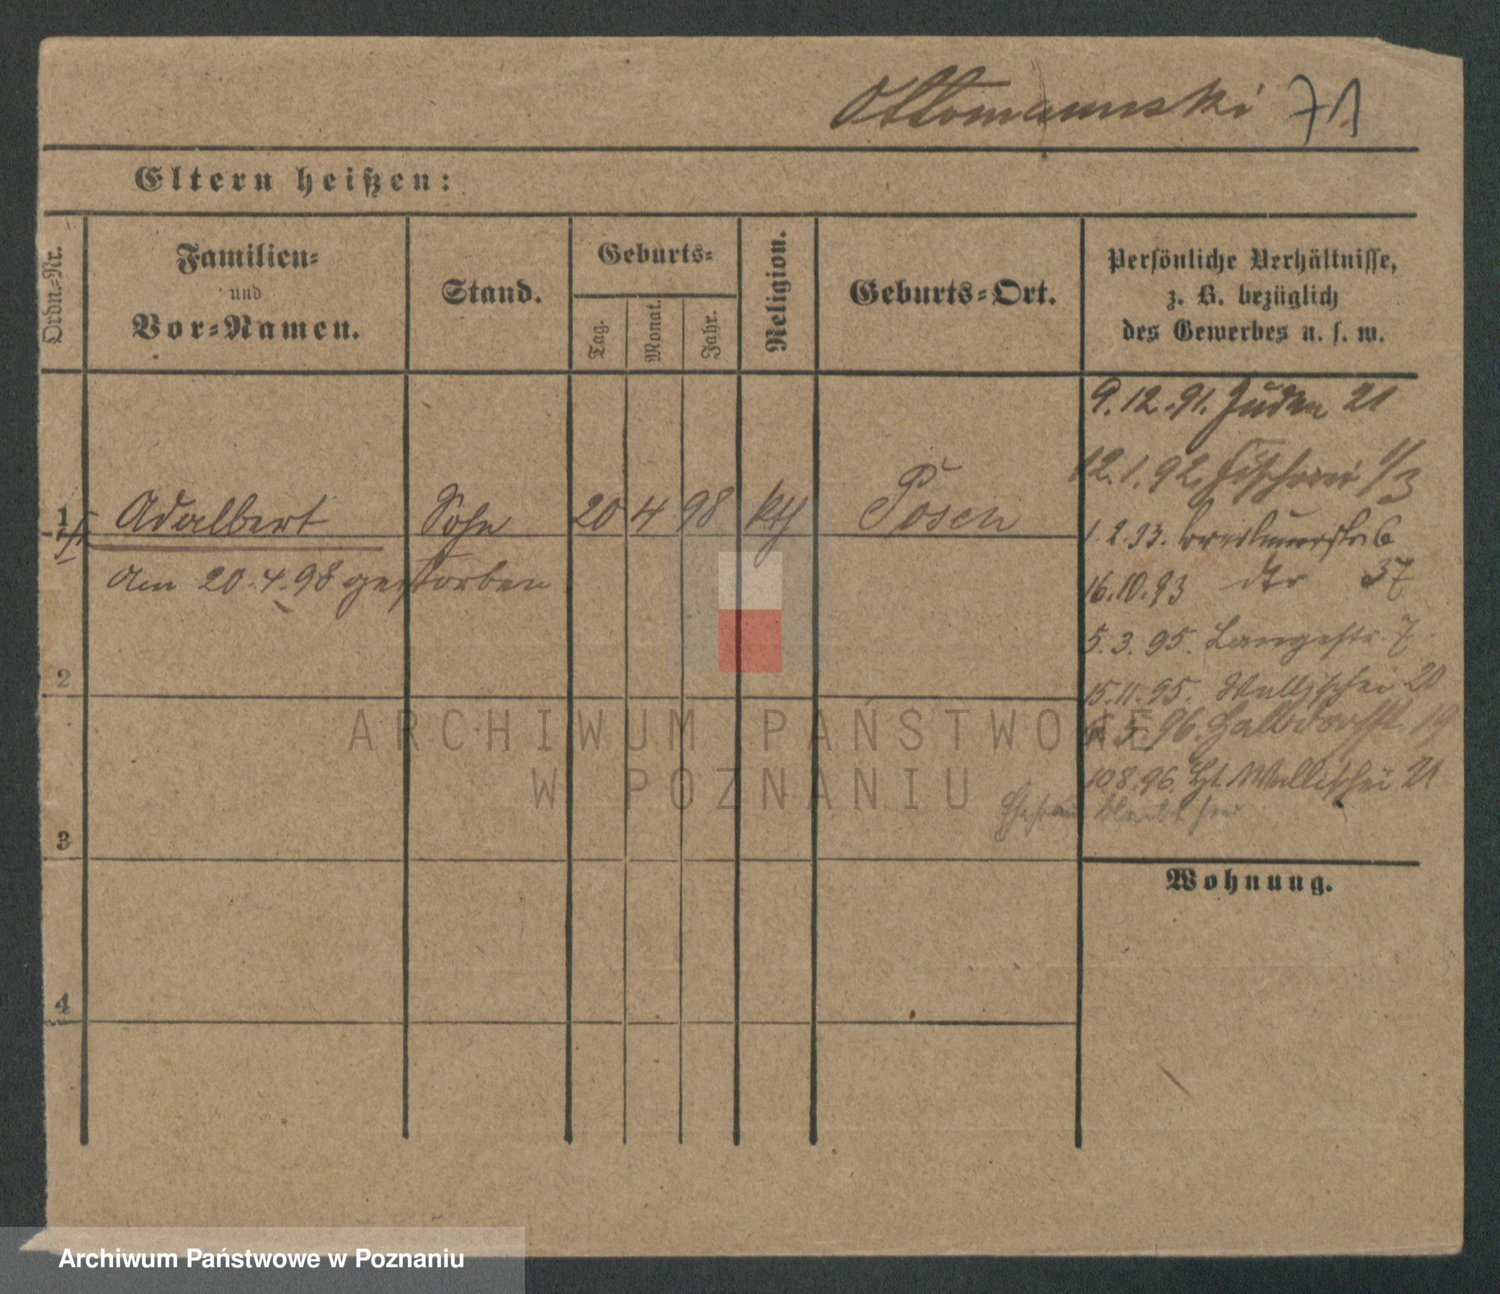 Ottomannski 71
Eltern heißen:
Ordn.-Nr.
Familien-
und
Vor-Namen.
Stand.
Geburts-
Tag.
Monat.
Jahr.
Religion.
Geburts-Ort.
Persönliche Verhältnisse,
z. B. bezüglich
des Gewerbes u. s. w.
9.12.91. Juden 21
12.1.92. Fischerei 1/3
1 Adalbert Sohn 20 4 98 kth Posen
1.2.93. 6
am 20.4.98 gestorben
16.10.93 dto 37
5.3.95. Langestr. 7
2
15.11.95. Wallischei 20
5.96. Halbdorfstr. 19
ARCHIWUM PAŃSTWOWE
W POZNANIU
10.8.96. Wallischei 21
Ehefrau bleibt hier
3
Wohnung.
4
Archiwum Państwowe w Poznaniu